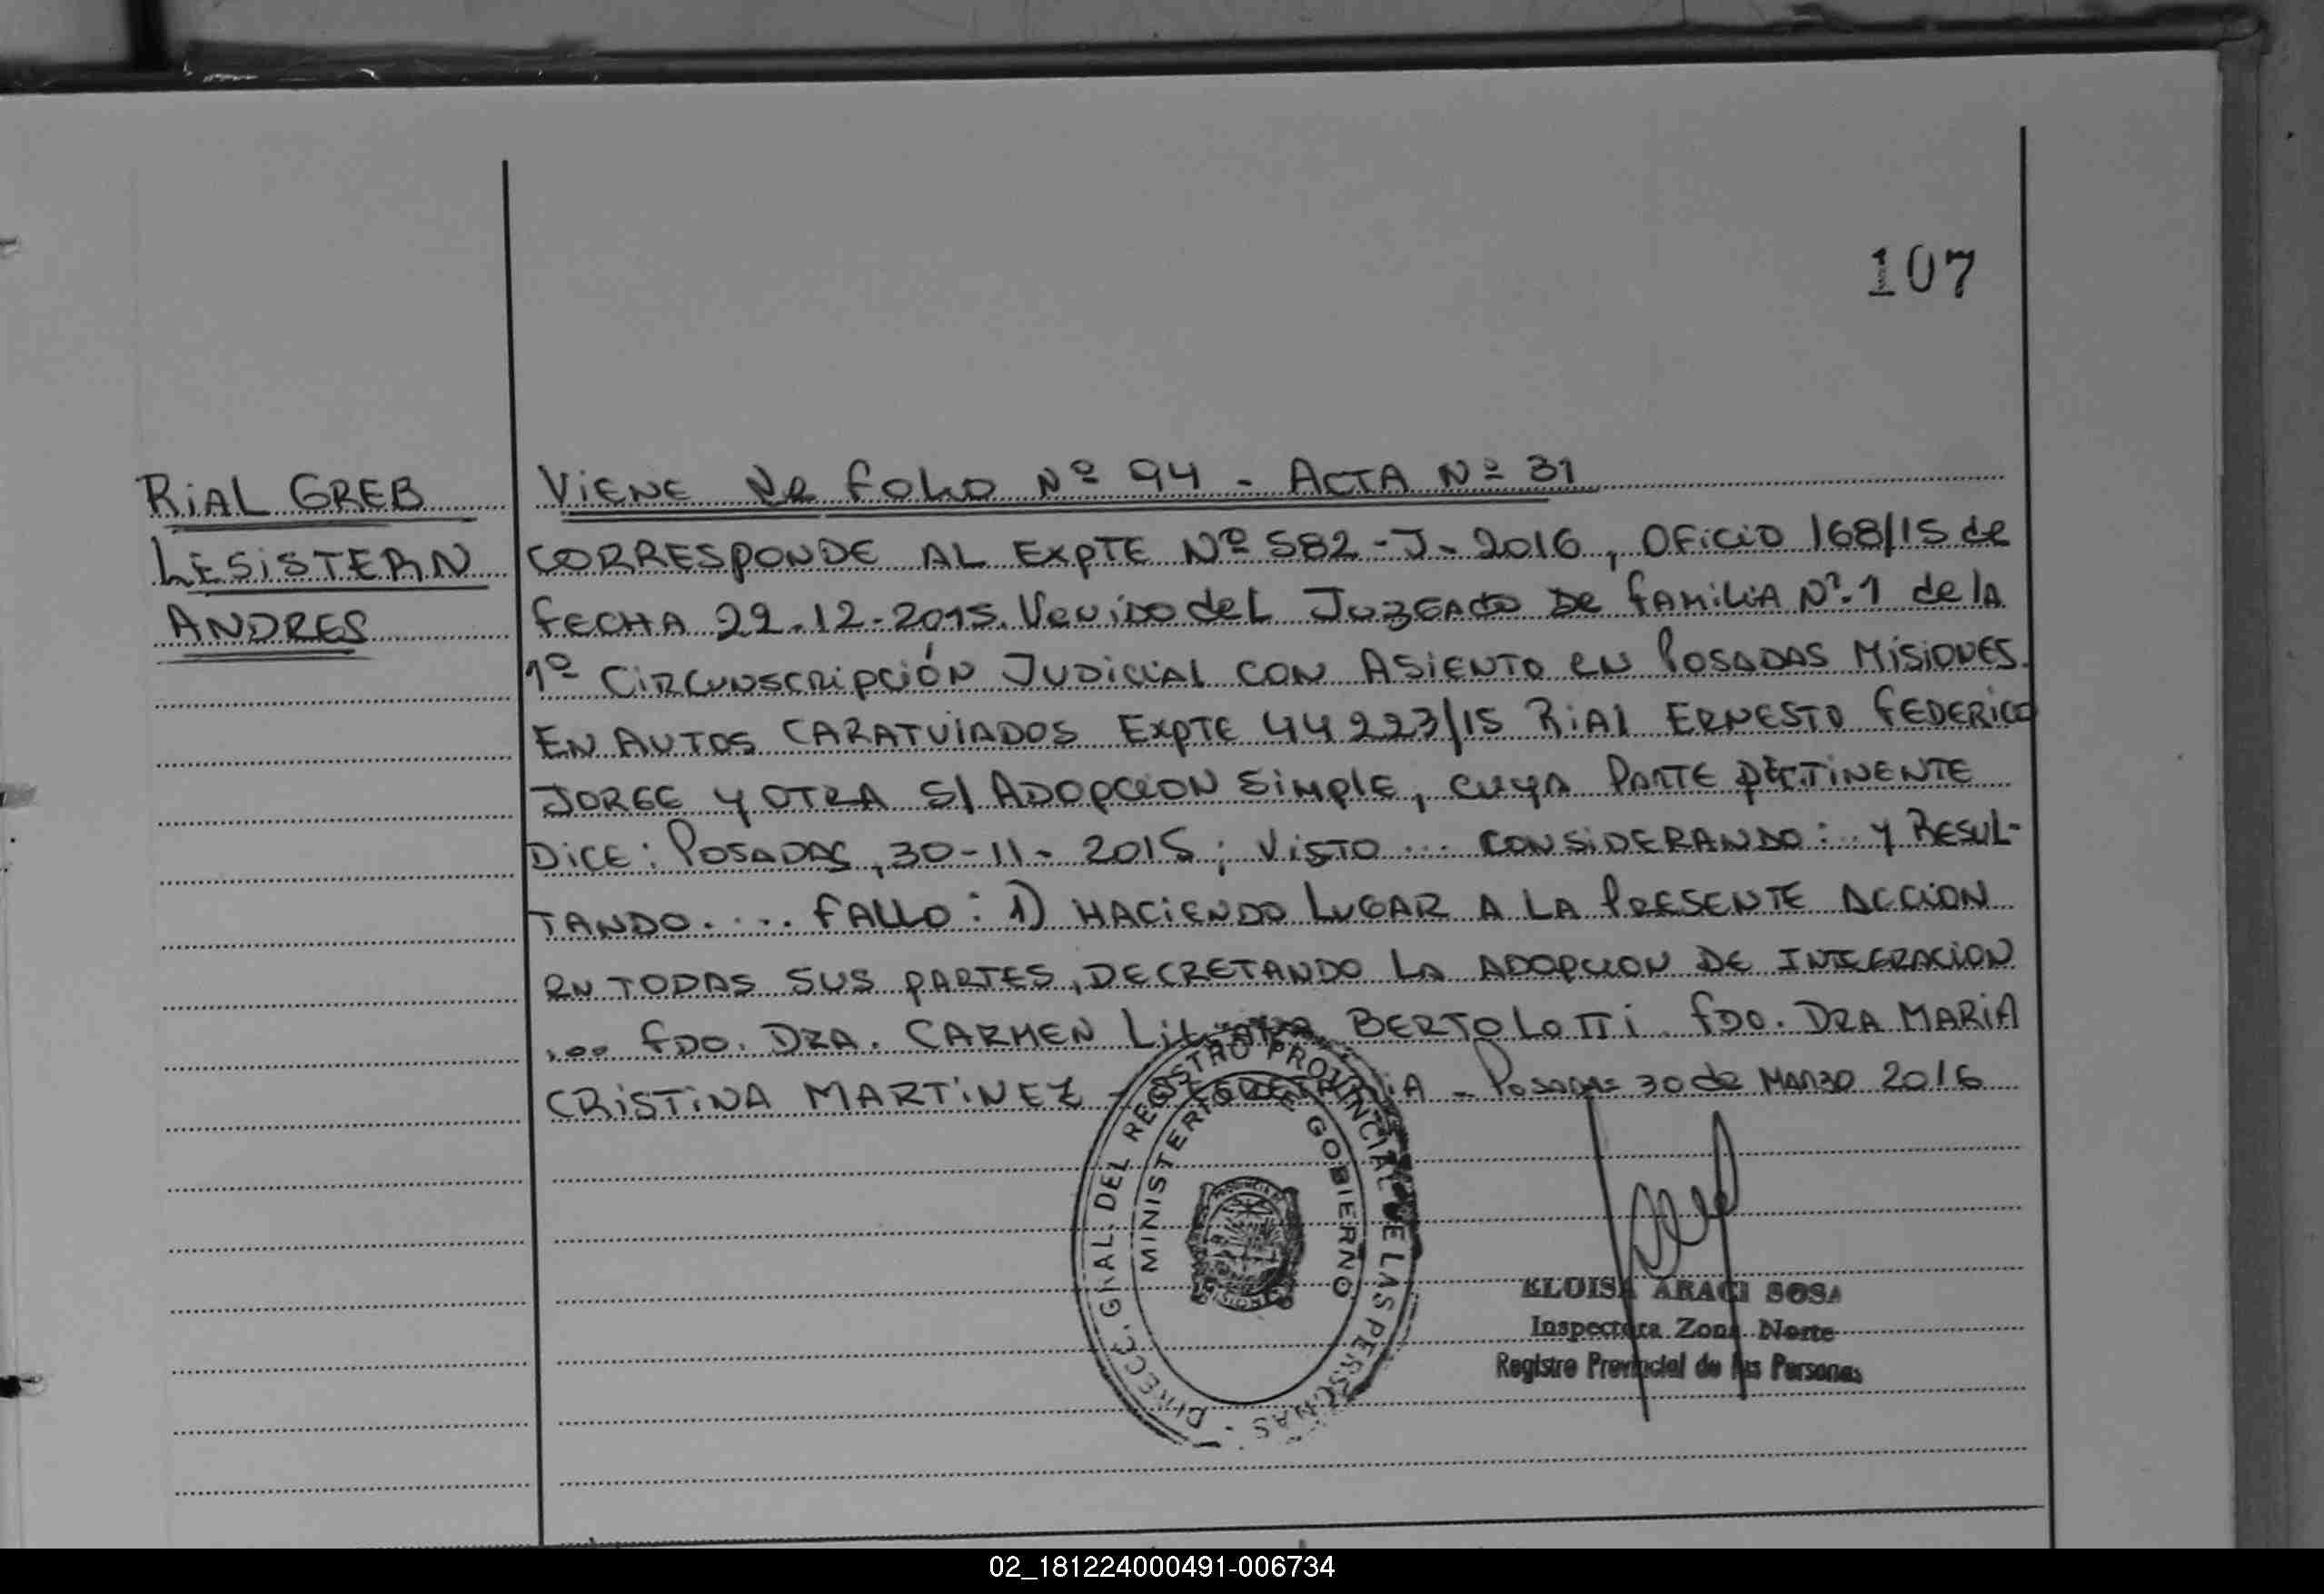 107
RIAL GREB
LESISTERN
ANDRES
VIENE de FOLIO Nº 94 - ACTA Nº 31
CORRESPONDE AL EXPTE Nº 582-J-2016, OFICIO 168/15 de
FECHA 22-12-2015. VENIDO del JUZGADO DE FAMILIA Nº 1 de la
1º CIRCUNSCRIPCIÓN JUDICIAL CON ASIENTO EN POSADAS MISIONES.
EN AUTOS CARATULADOS EXPTE 44223/15 RIAL ERNESTO FEDERICO
JORGE Y OTRA S/ ADOPCION SIMPLE, CUYA PARTE PERTINENTE
DICE: POSADAS, 30-11-2015; VISTO... CONSIDERANDO:.. Y RESUL-
TANDO..... FALLO: 1) HACIENDO LUGAR A LA PRESENTE ACCION
EN TODAS SUS PARTES, DECRETANDO LA ADOPCION DE INTEGRACION
... FDO. DRA. CARMEN LILIANA BERTOLOTTI. FDO. DRA MARIA
CRISTINA MARTINEZ - SECRETARIA - POSADAS 30 de MARZO 2016
DIRECC. GRAL. DEL REGISTRO PROVINCIAL DE LAS PERSONAS
MINISTERIO DE GOBIERNO
PROVINCIA DE
MISIONES
ELOISA ARACI SOSA
Inspectora Zona Norte
Registro Provincial de las Personas
02_181224000491-006734